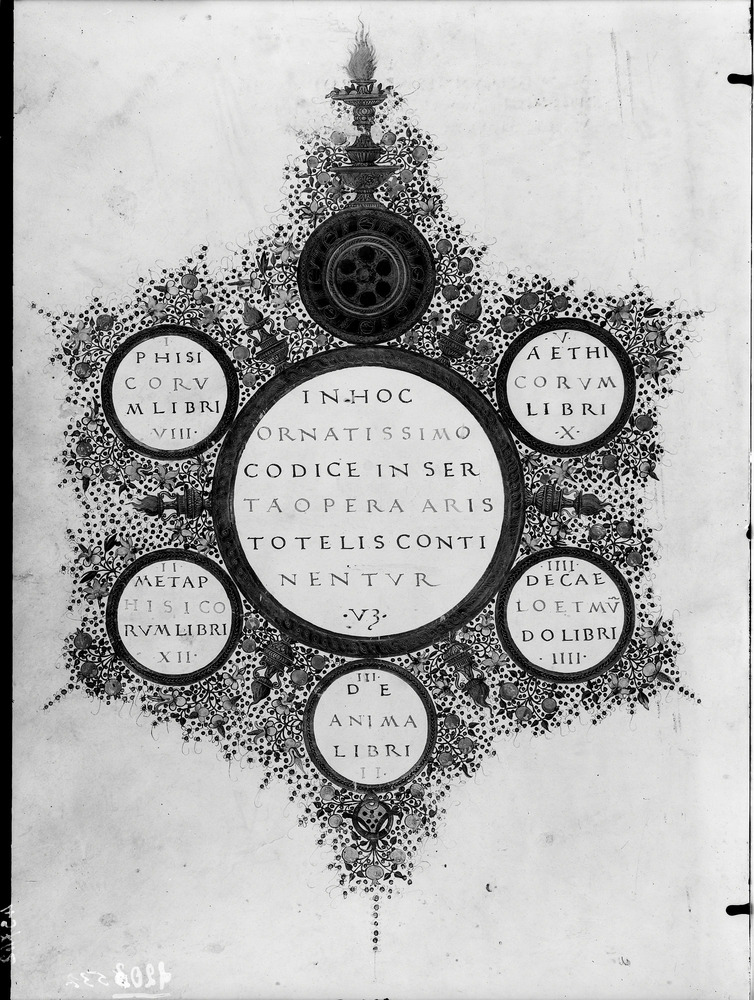 IN·HOC
ORNATISSIMO
CODICE IN SER
TA OPERA ARIS
TOTELIS CONTI
NENTVR
·Vꝫ·
I
PHISI
CORV
M LIBRI
·VIII·
II
METAP
HISICO
RVM LIBRI
XII·
·III·
DE
ANIMA
LIBRI
II
IIII·
DE CAE
LO ET MV̄
DO LIBRI
·IIII·
·V·
AETHI
CORVM
LIBRI
·X·